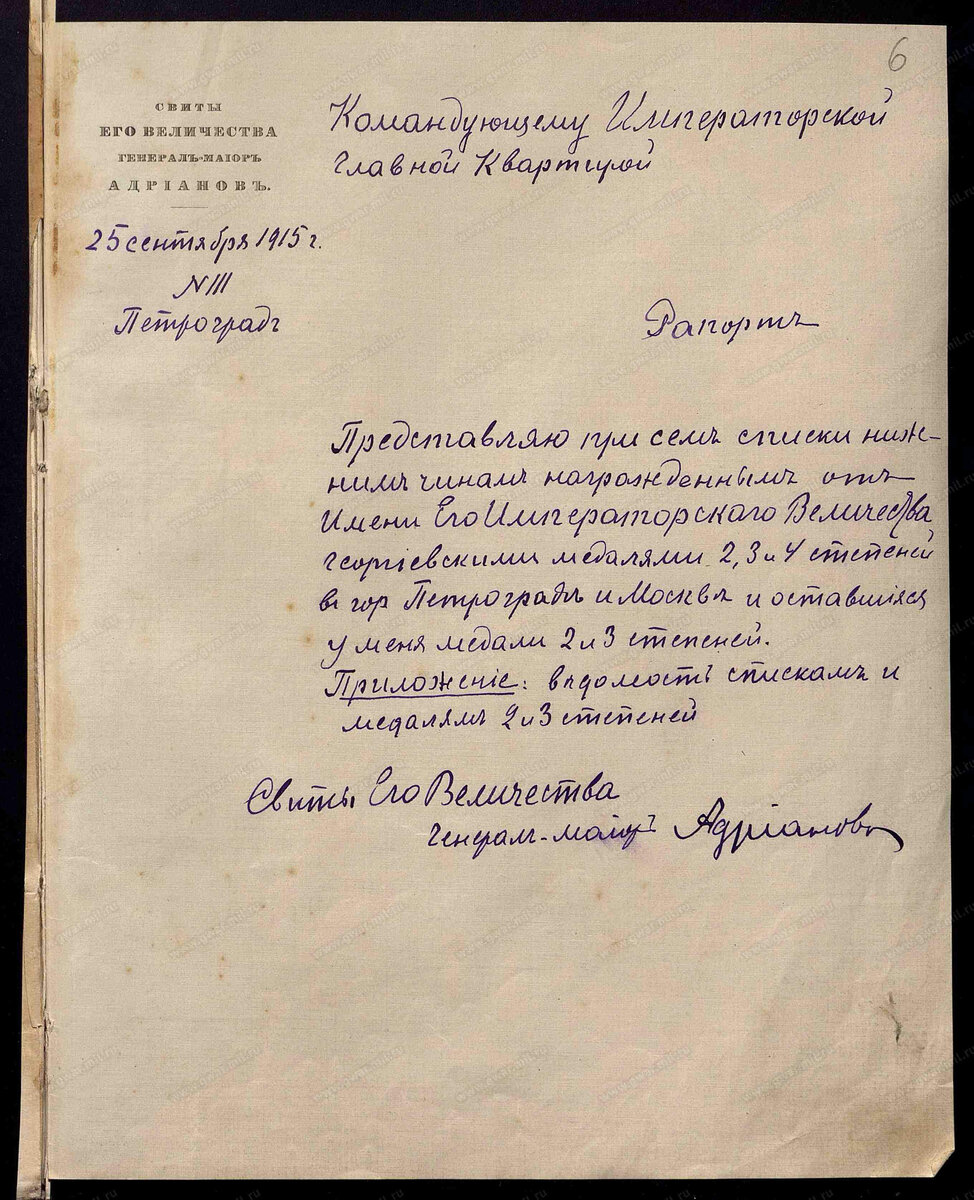 6
СВИТЫ
ЕГО ВЕЛИЧЕСТВА
ГЕНЕРАЛЪ-МАІОРЪ
АДРІАНОВЪ.
25 сентября 1915 г.
N 111
Петроградъ
Командующему Императорской
Главной Квартирой
Рапортъ
Представляю при семъ списки ниж-
нимъ чинамъ награжденнымъ отъ
Имени Его Императорскаго Величества
Георгіевскими медалями 2, 3 и 4 степеней
въ гор Петроградѣ и Москвѣ и оставшіяся
у меня медали 2 и 3 степеней.
Приложеніе: вѣдомость спискамъ и
медалямъ 2 и 3 степеней
Свиты Его Величества
Генералъ-маіоръ Адріановъ
www.gwar.mil.ru